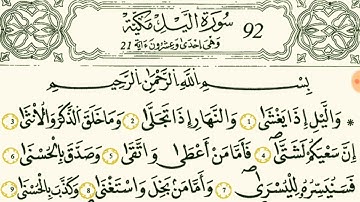 92 سُورَةُ الَّيْلِ مَكِّيَّةٌ
وَهِىَ اِحْدٰى وَعِشْرُونَ اٰيَةً 21
بِسْمِ اللهِ الرَّحْمٰنِ الرَّحِيمِ
* وَالَّيْلِ اِذَا يَغْشَىٰ 1 وَالنَّهَارِ اِذَا تَجَلَّىٰ 2 وَمَا خَلَقَ الذَّكَرَ وَالْاُنْثَىٰ 3
اِنَّ سَعْيَكُمْ لَشَتَّىٰ 4 فَاَمَّا مَنْ اَعْطَىٰ وَاتَّقَىٰ 5 وَصَدَّقَ بِالْحُسْنَىٰ 6
فَسَنُيَسِّرُهُ لِلْيُسْرَىٰ 7 وَاَمَّا مَنْ بَخِلَ وَاسْتَغْنَىٰ 8 وَكَذَّبَ بِالْحُسْنَىٰ 9